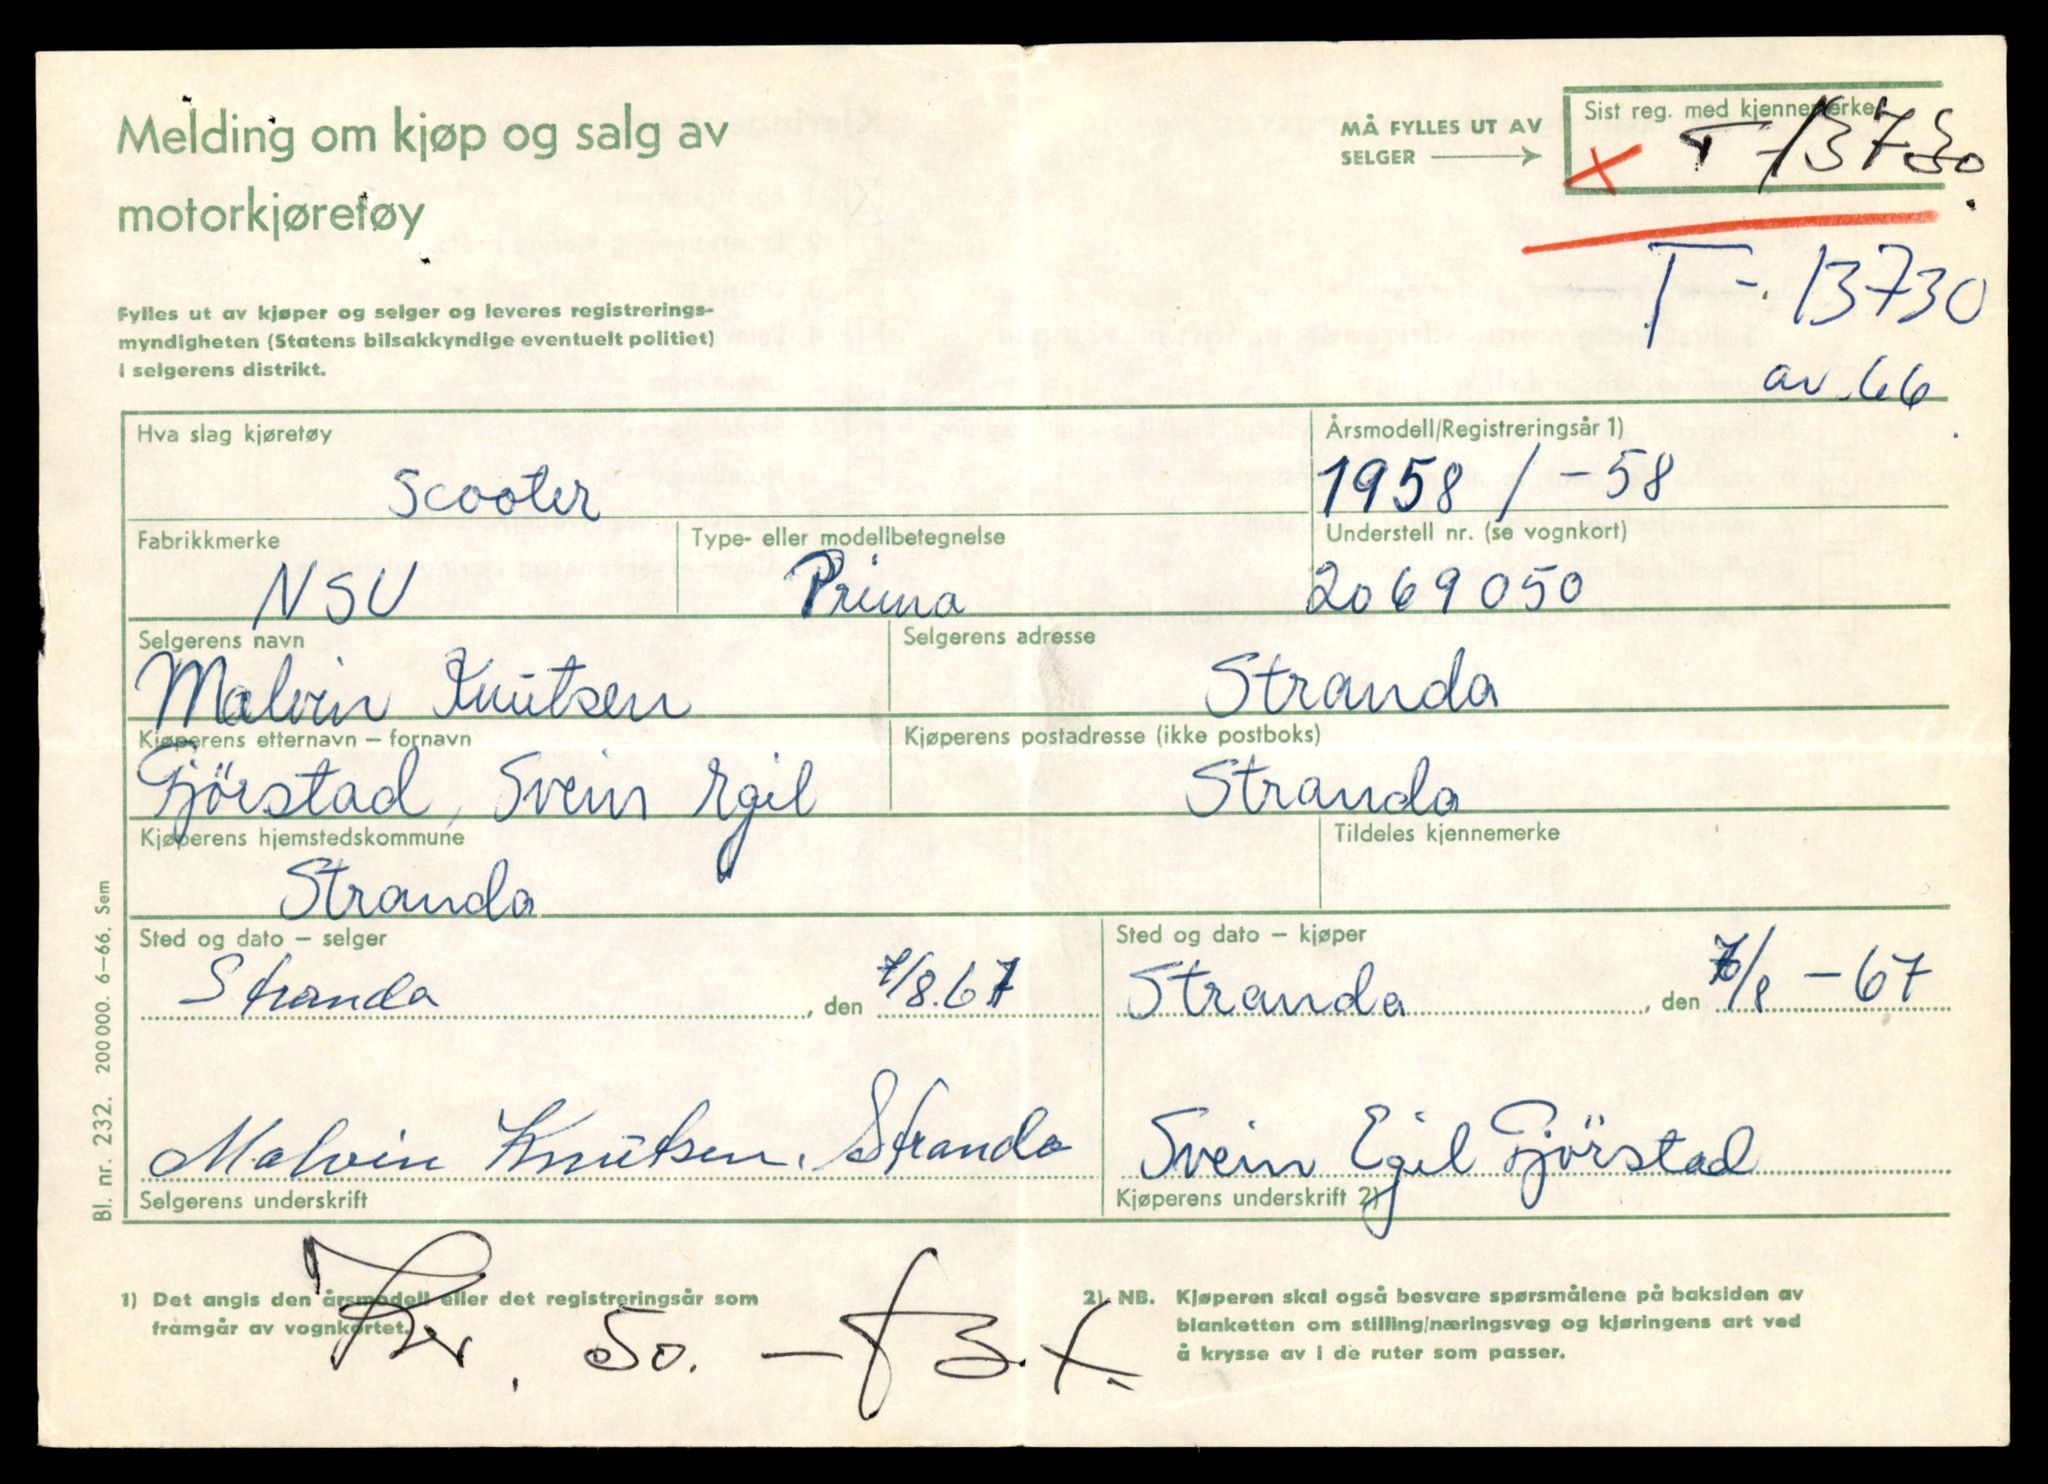 Melding om kjøp og salg av
motorkjøretøy
MÅ FYLLES UT AV
SELGER
Sist reg. med kjennemerke
T-13730
T-13730
av 66
Fylles ut av kjøper og selger og leveres registrerings-
myndigheten (Statens bilsakkyndige eventuelt politiet)
i selgerens distrikt.
Hva slag kjøretøy
Scooter
Årsmodell/Registreringsår 1)
1958 / -58
Fabrikkmerke
NSU
Type- eller modellbetegnelse
Prima
Understell nr. (se vognkort)
2069050
Selgerens navn
Malvin Knutsen
Selgerens adresse
Stranda
Kjøperens etternavn – fornavn
Gjörstad, Svein Egil
Kjøperens postadresse (ikke postboks)
Stranda
Kjøperens hjemstedskommune
Stranda
Tildeles kjennemerke
Sted og dato – selger
Stranda, den 7/8.67
Sted og dato – kjøper
Stranda, den 7/8 - 67
Malvin Knutsen. Stranda
Selgerens underskrift
Svein Egil Gjörstad
Kjøperens underskrift 2)
Bl. nr. 232. 200 000. 6–66. Sem
1) Det angis den årsmodell eller det registreringsår som
framgår av vognkortet.
Kr. 50. –
2) NB. Kjøperen skal også besvare spørsmålene på baksiden av
blanketten om stilling/næringsveg og kjøringens art ved
å krysse av i de ruter som passer.